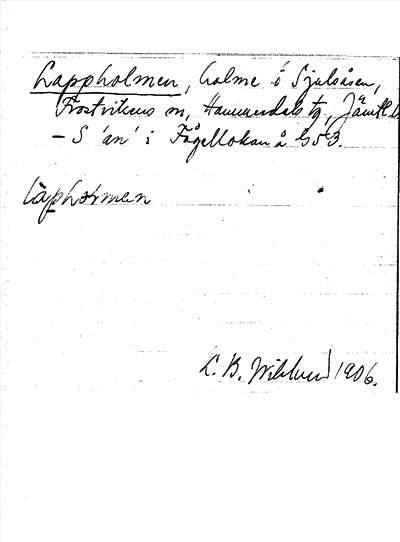 Lappholmen, holme i Sjulsåsen,
Frostvikens sn, Hammerdals tg, Jämtl. l.
– S 'an' i Fågellokan å G 53.
làpho̵men
K. B. Wiklund 1906.